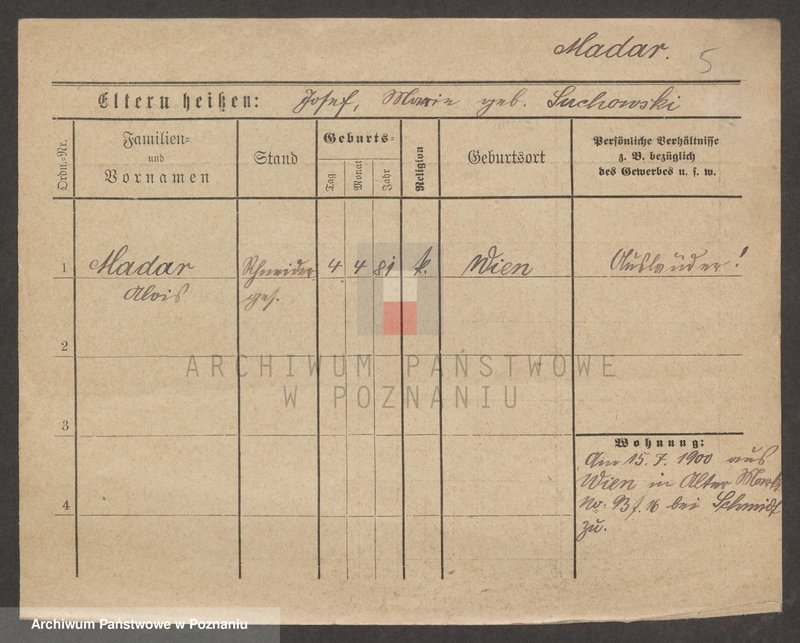 Madar. 5
Eltern heißen: Josef, Marie geb. Suchowski
Ordn.-Nr.
Familien-
und
Vornamen
Stand
Geburts-
Tag
Monat
Jahr
Religion
Geburtsort
Persönliche Verhältnisse
z. B. bezüglich
des Gewerbes u. s. w.
1 Madar Schneider 4 4 81 k. Wien Ausländer!
Alois ges.
2
ARCHIWUM PAŃSTWOWE
W POZNANIU
3
Wohnung:
Am 15. 7. 1900 aus
Wien in Alter Markt
No: 93 bei Schmidt
zu.
4
Archiwum Państwowe w Poznaniu